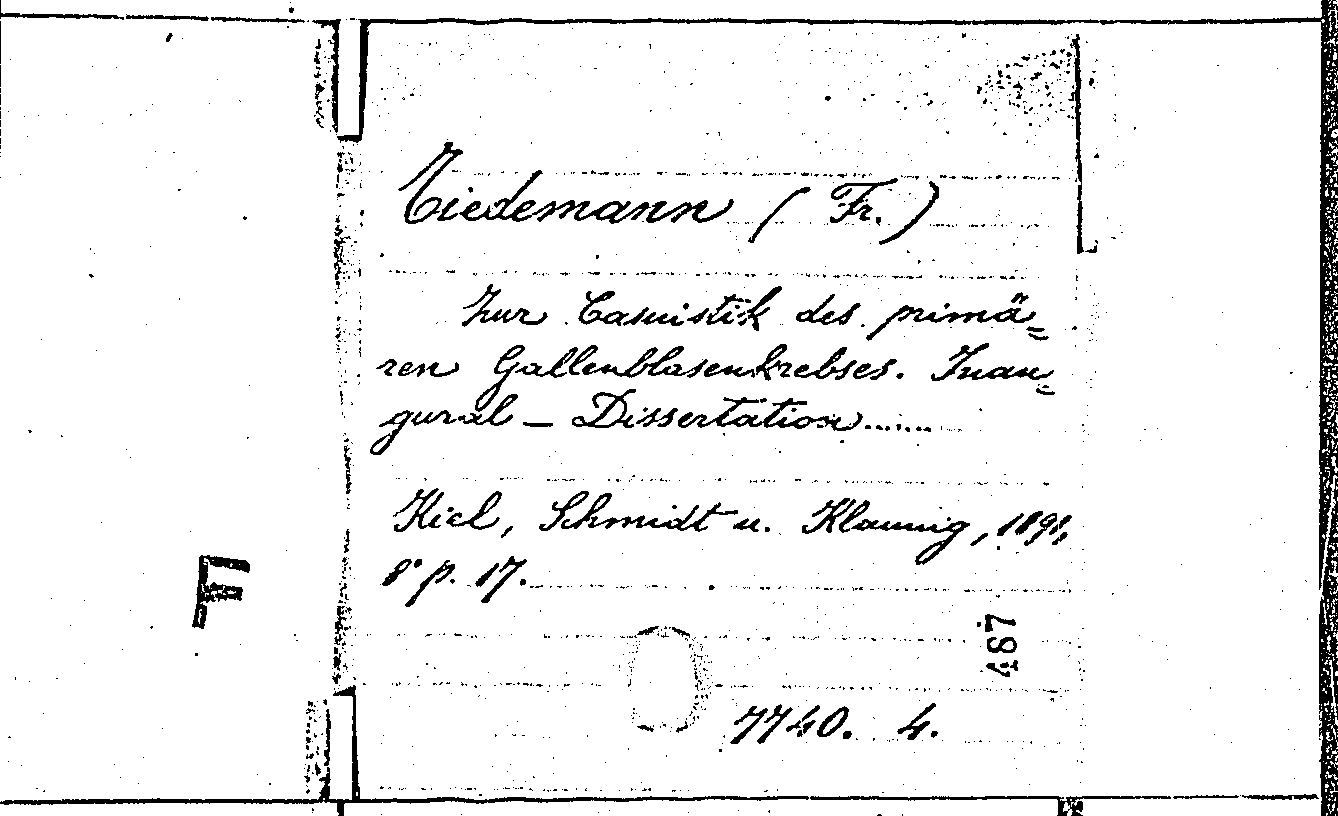 Tiedemann (Fr.)
Zur Casuistik des primä=
ren Gallenblasenkrebses. Inau=
gural – Dissertation......
Kiel, Schmidt u. Klaunig, 1891,
8° p. 17.
F
467
7740. 4.